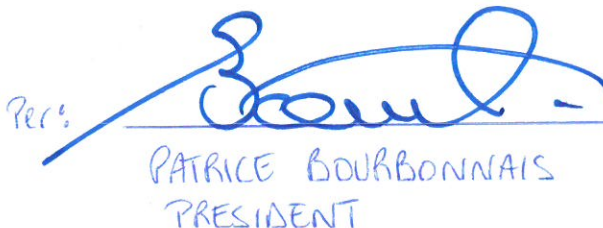 Per:
PATRICE BOURBONNAIS
PRESIDENT